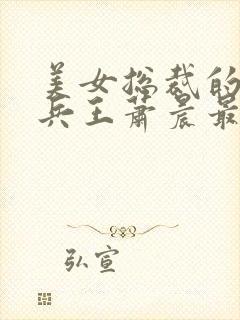 美女总裁的
兵王萧晨最
弘宣